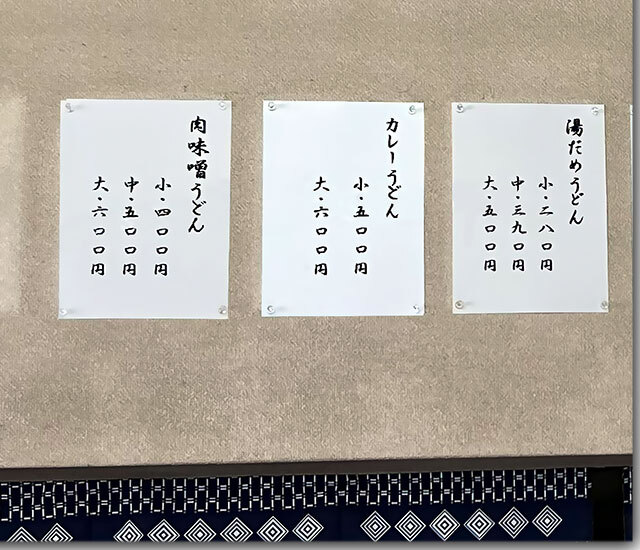 湯だめうどん
小・二八〇円
中・三九〇円
大・五〇〇円
カレーうどん
小・五〇〇円
大・六〇〇円
肉味噌うどん
小・四〇〇円
中・五〇〇円
大・六〇〇円